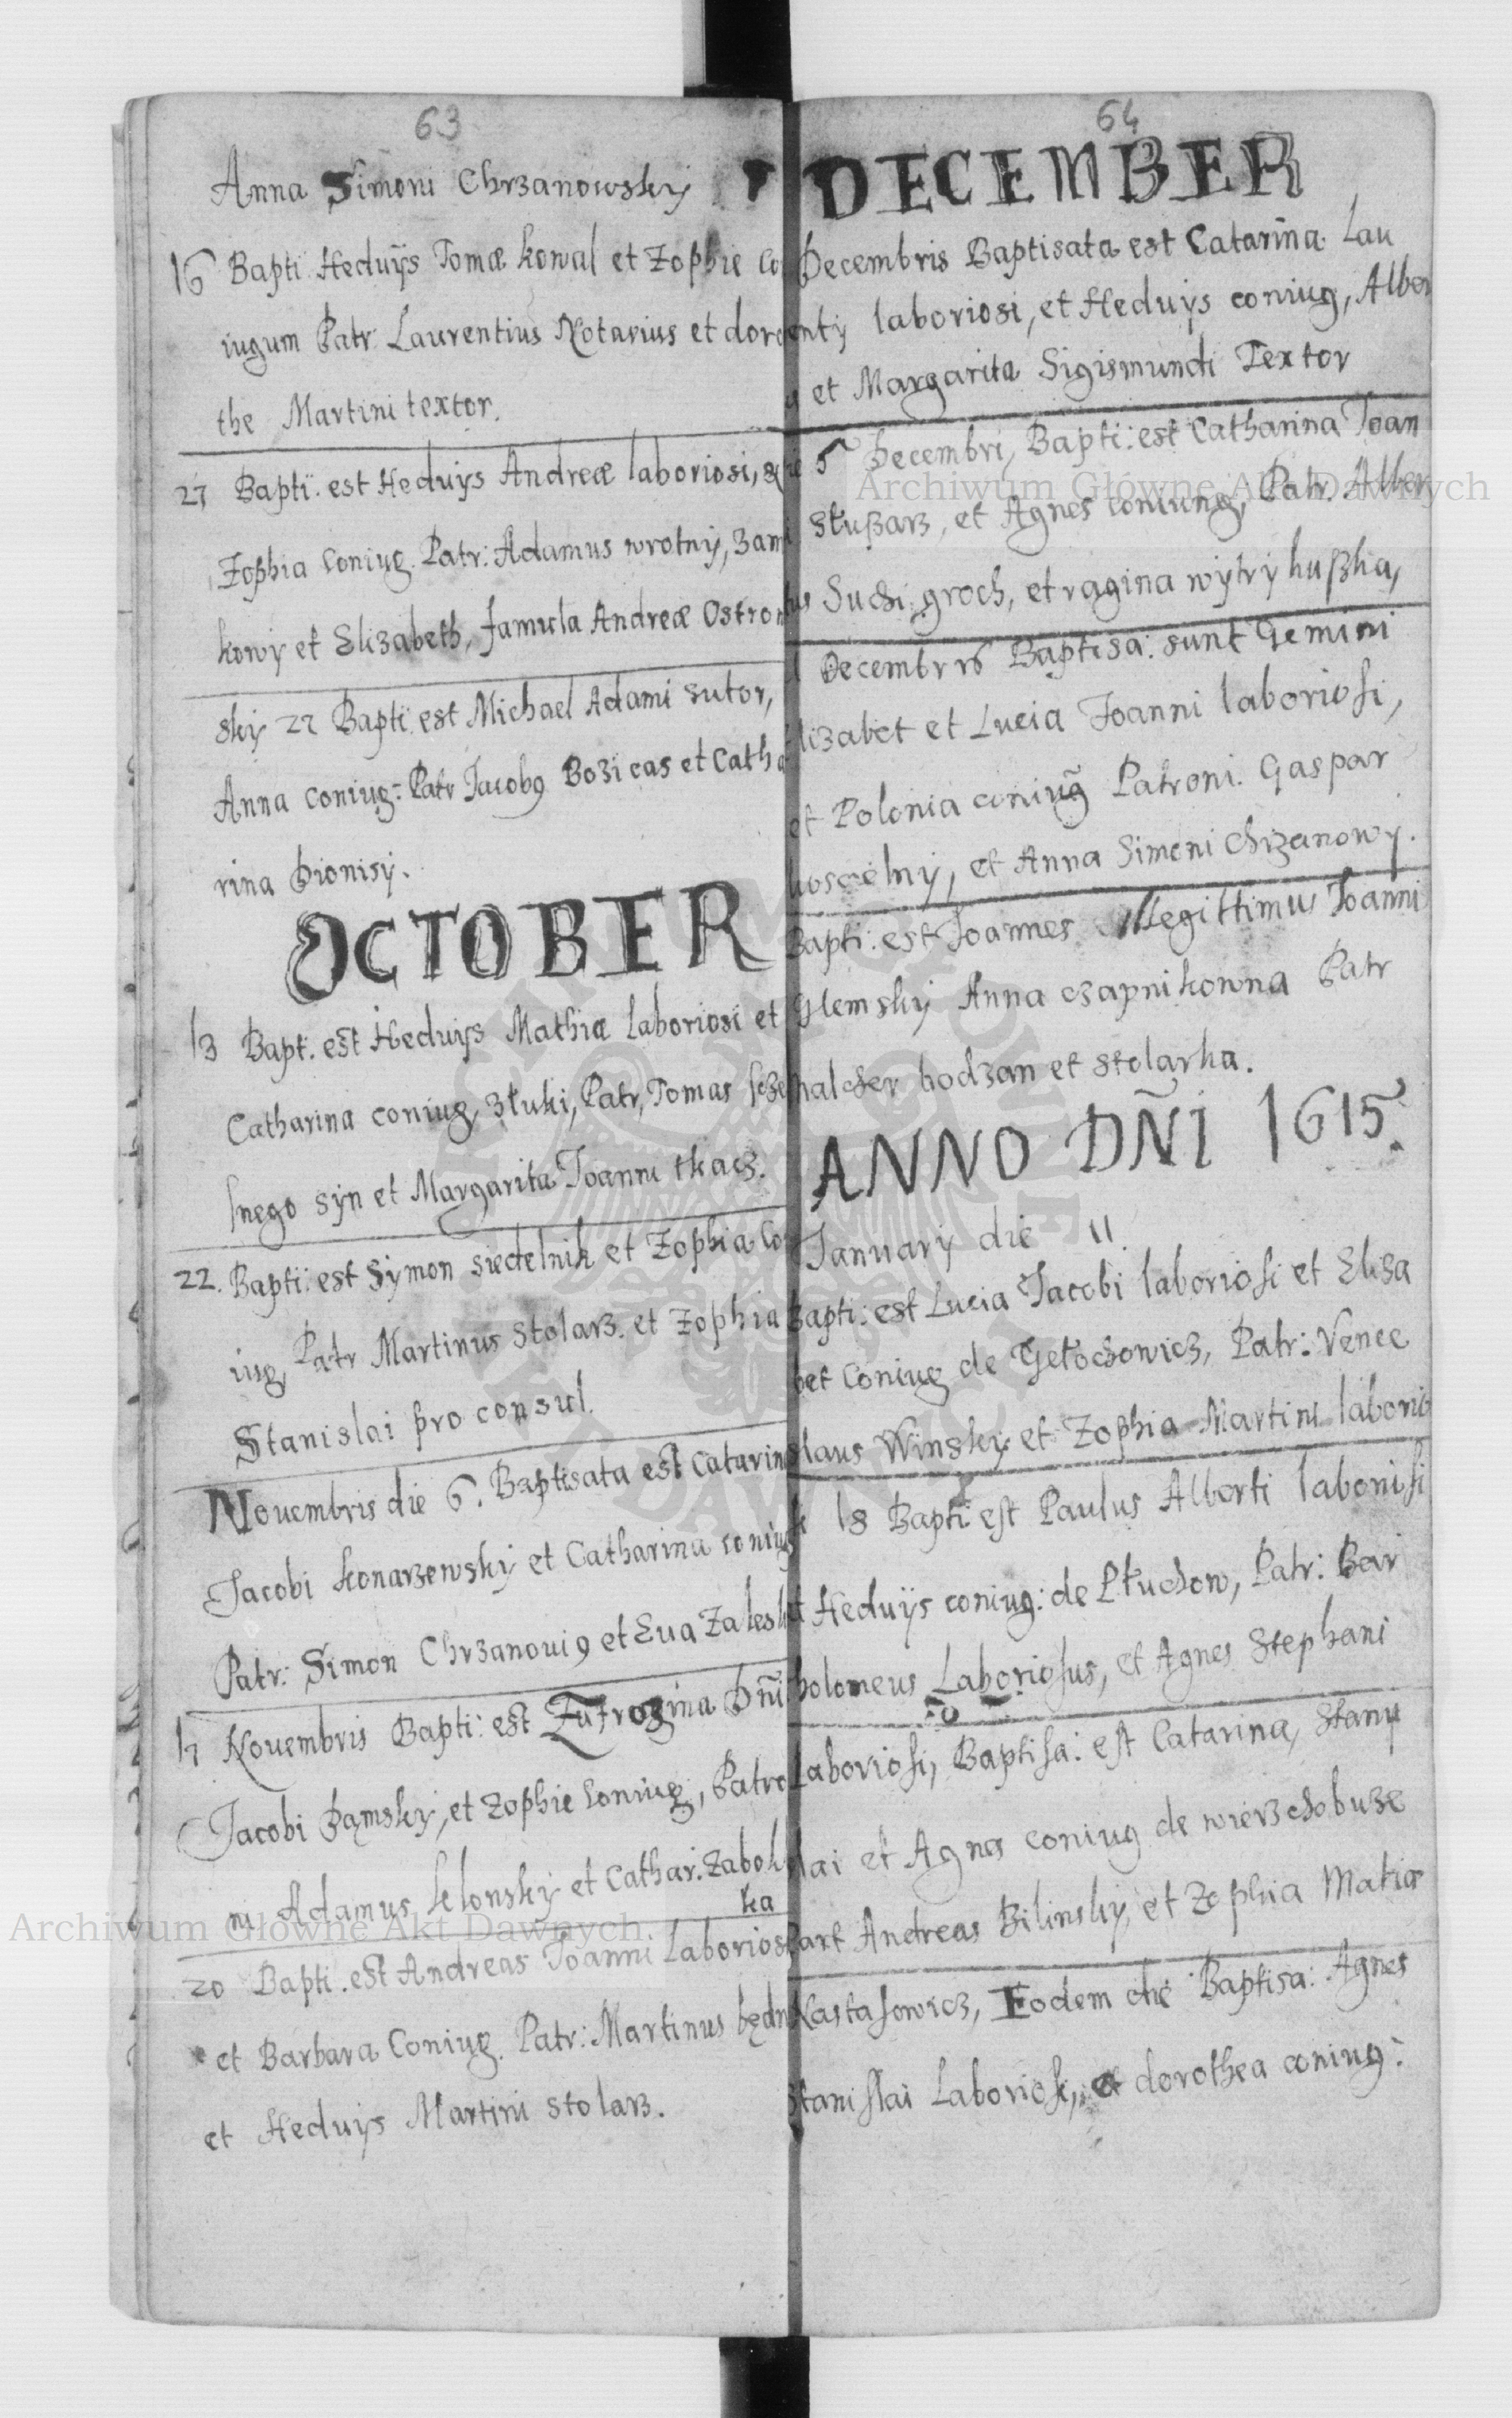 63
Anna Simoni Chrzanowsky
16 Bapti Heduijs Tomæ kowal et Zophie Co
iugum Patr Laurentius Notarius et doro
the Martini textor.
27 Bapti. est Heduijs Andreæ laboriosi,
Zophia Coniug. Patr: Adamus wrotny, zam
kowy et Elizabeth, famula Andreæ Ostrow
sky 27 Bapti est Michael Adami sutor,
Anna coniug: Patr Jacobg Bozicas et Catha
rina Dionisy.
OCTOBER
13 Bapt. est Heduijs Mathiæ laboriosi et
Catharina coniug, ztuki, Patr, Tomas
lnego syn et Margarita Joanni tkacz.
22. Bapti: est Symon siedelnik et Zophia Co
iug, Patr Martinus Stolarz. et Zophia
Stanislai pro consul.
Nouembris die 6. Baptisata est Catarin
Jacobi konarzewsky et Catharina coniug
Patr: Simon Chrzanouig et Eua Zalesk
17 Nouembris Bapti: est Eufrozina Dñi
Jacobi Dąmsky, et Zophie Coniug, Patro
ni Adamus klonsky et Cathar. Zabok
ka
20 Bapti. est Andreas Joanni Laborios
et Barbara Coniug. Patr: Martinus będn
et Heduijs Martini Stolarz.
64
DECEMBER
Decembris Baptisata est Catarina Lau
enty laboriosi, et Heduijs coniug, Alber
et Margarita Sigismundi Textor
5 Decembri, Bapti: est Catharina Joan
Słußarz, et Agnes coniung, Patr. Alber
tus Suchi groch, et ragina wytrykußka,
Decembr 16 Baptisa: sunt Gemini
lizabet et Lucia Joanni laboriosi,
et Polonia coniug Patroni. Gaspar
koscielny, et Anna Simoni Chrzanowy.
Bapti: est Joannes illegittimus Joanni
Glemsky Anna czapnikowna Patr
halcher bodzan et stolarka.
ANNO DÑI 1615.
January die 11
Bapti: est Lucia Jacobi laboriosi et Elisa
bet Coniug de Gełochowicz, Patr: Vence
slaus Winsky et Zophia Martini laborio
18 Bapti est Paulus Alberti laboriosi
et Heduijs coniug: de Płuchow, Patr: Bar
tholomeus Laboriosus, et Agnes Stephani
Laboriosi, Baptisa: est Catarina, Stany
slai et Agnes coniug de wierzchobuze
Part Andreas Bilinsky, et Zophia Matiæ
Nastasowicz, Eodem die Baptisa: Agnes
Stanislai Laboriosi, et dorothea coniug:
Archiwum Główne Akt Dawnych
Archiwum Główne Akt Dawnych